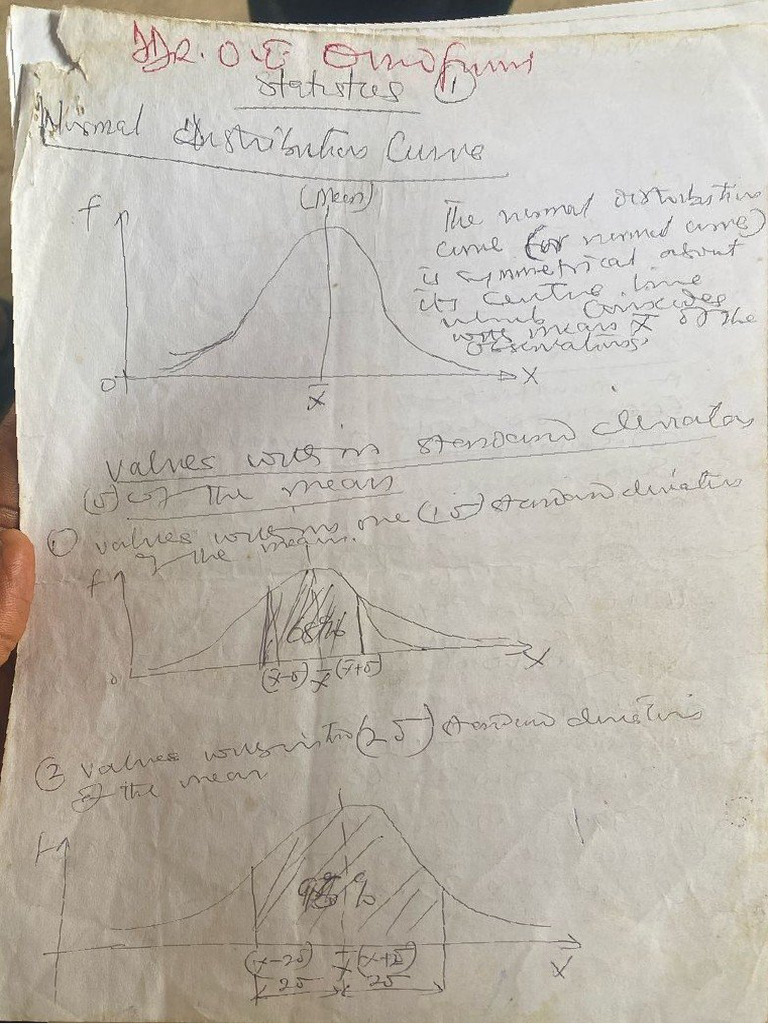 DR. O.E.
Statistics ①
Normal distribution Curve
(Mean)
f
The normal distribution
curve (or normal curve)
is symmetrical about
its centre line
which coincides
with mean x̄ of the
observations
0
X
x̄
Values within standard deviation
(σ) of the mean
① values within one (1σ) standard deviation
of the mean.
f
68%
0
(x̄-σ) x̄ (x̄+σ)
X
② values within (2σ) standard deviations
of the mean
f
%
(x-2σ) x̄ (x+2σ)
X
2σ 2σ